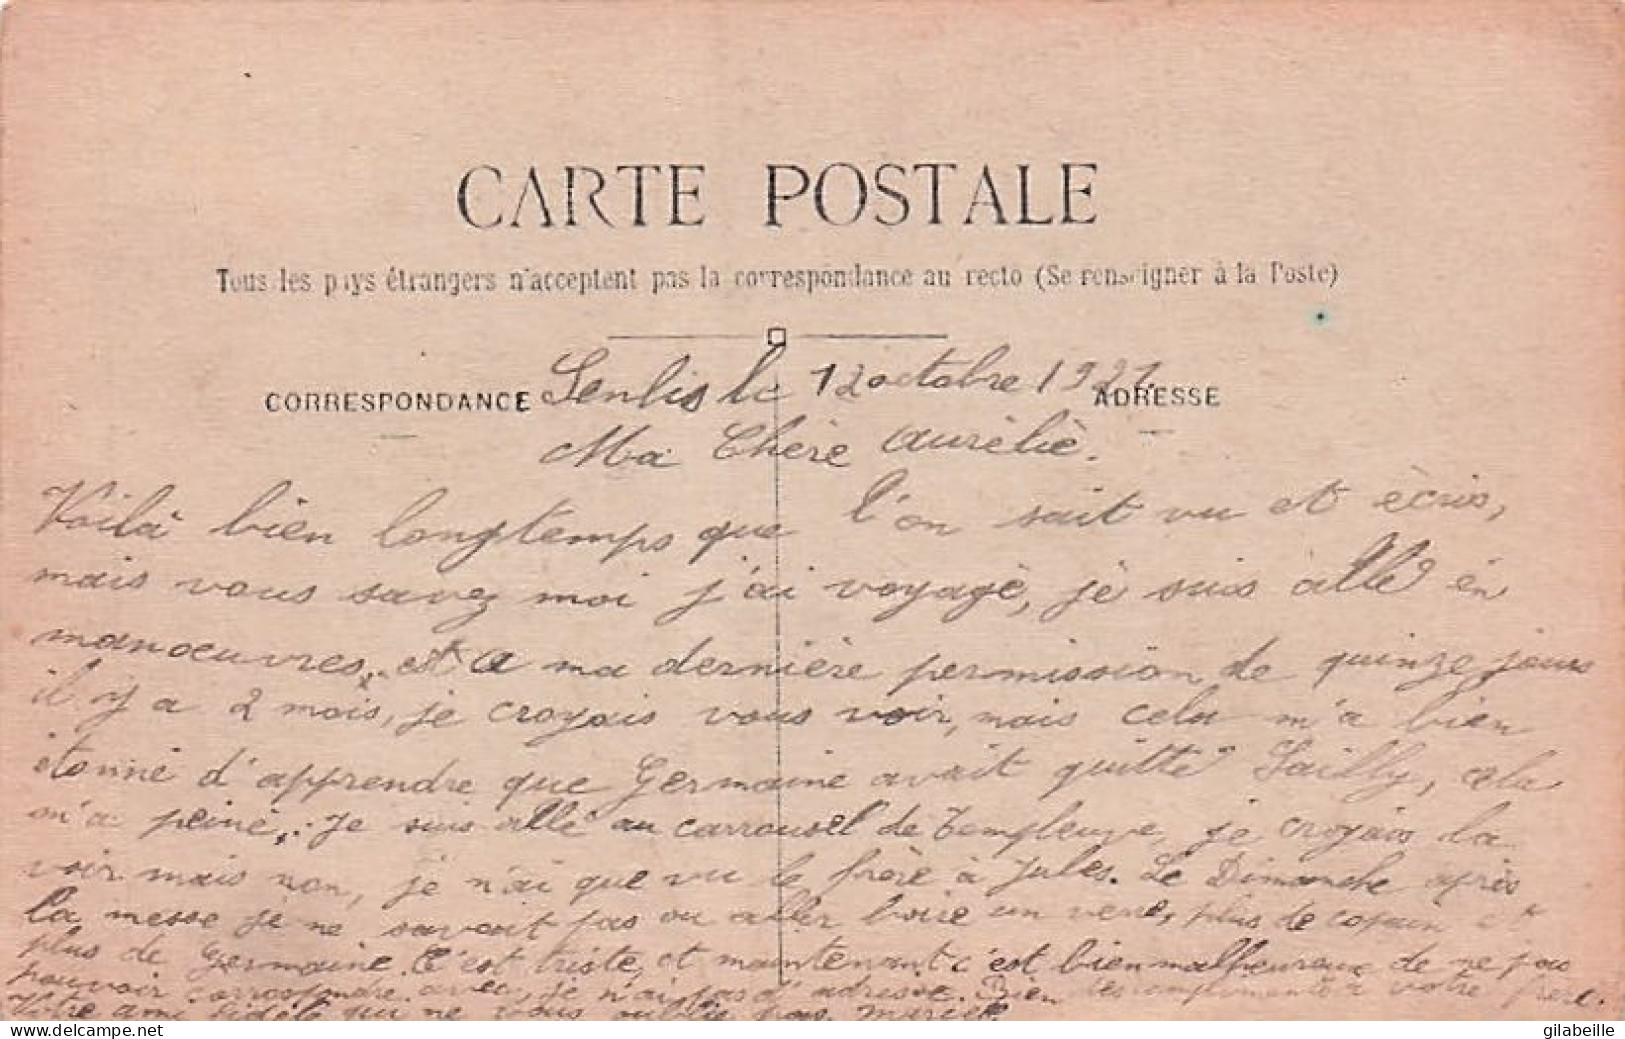 CARTE POSTALE
Tous les pays étrangers n'acceptent pas la correspondance au recto (Se renseigner à la Poste)
CORRESPONDANCE
ADRESSE
Senlis le 12 octobre 1921.
Ma Chère Aurélie.
Voilà bien longtemps que l'on sait vu et écris,
mais vous savez moi j'ai voyagé, je suis allé en
manoeuvres, et a ma dernière permission de quinze jours
il y a 2 mois, je croyais vous voir, mais cela m'a bien
étonné d'apprendre que Germaine avait quitté Sailly, cela
m'a peiné, Je suis allé au carrousel de Templeuve, je croyais la
voir mais non, je n'ai que vu le frère à Jules. Le Dimanche après
la messe je ne savait pas ou aller boire un verre, plus de copain et
plus de Germaine. C'est triste, et maintenant c'est bien malheureux de ne pas
pouvoir correspondre avec, je n'ai pas d'adresse. Bien des compliments à votre frère.
Votre ami fidèle qui ne vous oublie pas. Marcel.
gilabeille